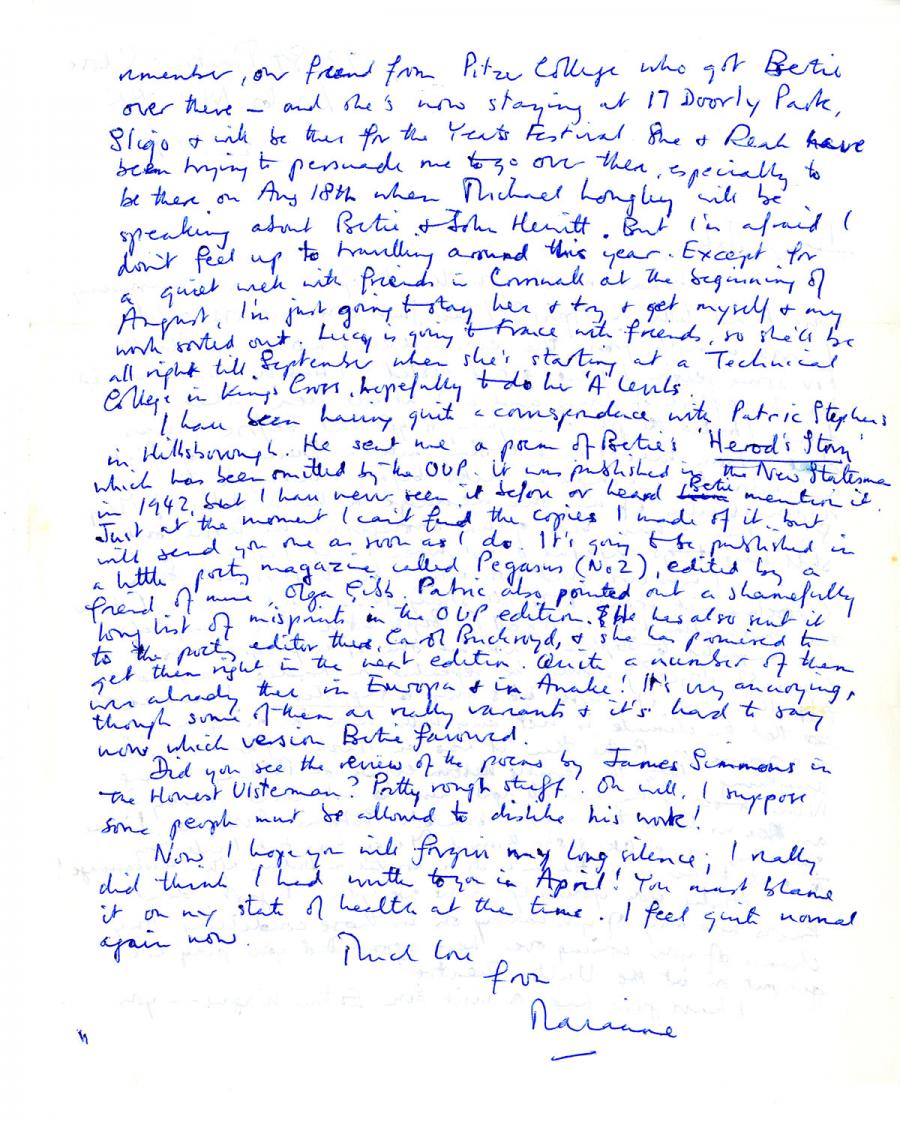 remember, our friend from Pitzer College who got Bertie
over there – and she's now staying at 17 Doorly Park,
Sligo & will be there for the Yeats Festival She & Reah have
been trying to persuade me to go over then, especially to
be there on Aug 18th when Michael Longley will be
speaking about Bertie & John Hewitt. But I'm afraid I
don't feel up to travelling around this year. Except for
a quiet week with friends in Cornwall at the beginning of
August, I'm just going to stay here & try & get myself & my
work sorted out. Lucy is going to France with friends, so she'll be
all right till September when she's starting at a Technical
College in Kings Cross, hopefully to do her 'A' levels
I have been having quite a correspondence with Patric Stephens
in Hillsborough. He sent me a poem of Bertie's 'Herod's Story'
which has been omitted by the OUP. it was published in the New Statesman
in 1942, but I have never seen it before or heard Bertie mention it.
Just at the moment I can't find the copies I made of it but
will send you one as soon as I do. It's going to be published in
a little poetry magazine called Pegasus (No 2), edited by a
friend of mine, Olga Gibb. Patric also pointed out a shamefully
long list of misprints in the OUP edition. He has also sent it
to the poetry editor there, Carol Buckroyd, & she has promised to
get them right in the next edition. Quite a number of them
were already there in Europa & in Anake! It's very annoying,
though some of them are really variants & it's hard to say
now which version Bertie favoured.
Did you see the review of the poems by James Simmons in
the Honest Ulsterman? Pretty rough stuff. Oh well, I suppose
some people must be allowed to dislike his work!
Now I hope you will forgive my long silence; I really
did think I had written to you in April! You must blame
it on my state of health at the time. I feel quite normal
again now.
Much love
from
Marianne